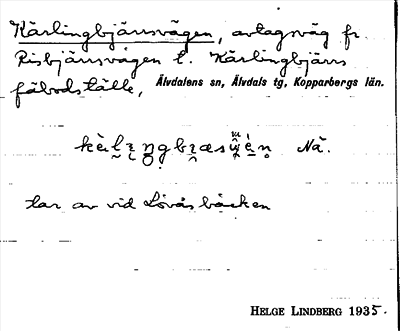 Kärlingbjärrsvägen, avtagsväg fr.
Risbjärrsvägen t. Kärlingbjärrs
fäbodställe, Älvdalens sn, Älvdals tg, Kopparbergs län.
Nä.
tar av vid Lövåsbäcken
HELGE LINDBERG 1935.